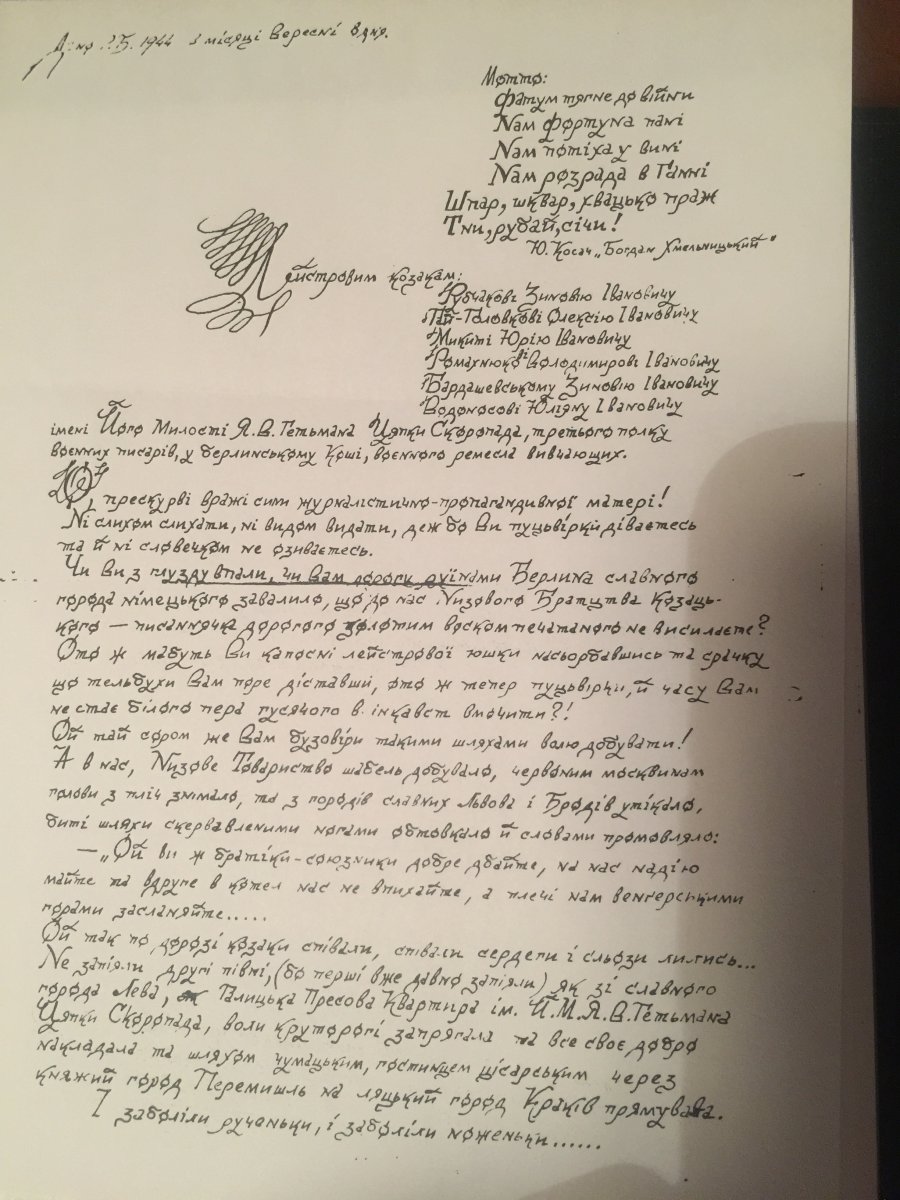 Дано .?Б. 1944 з місяці Вересні 8 дня.
Мотто:
Фатум тягне до війни
Nам фортуна пані
Nам потіха у вині
Nам розрада в Ганні
Шпар, шквар, хвацько праж
Тни, рубай, січи!
Ю. Косач „Богдан Хмельницький"
Лейстровим козакам:
Рубчакові Зиновію Івановичу
Гай-Головкові Олексію Івановичу
Микиті Юрію Івановичу
Романюкові Володимирові Івановичу
Бардашевському Зиновію Івановичу
Водоносові Юліяну Івановичу
імені Його Милості Я.В. Гетьмана Цяпки Скоропада, третього полку
воєнних писарів, у берлинському Коші, воєнного ремесла вивчающих.
Ой, прескурві вражі сини журналістично-пропагандивної матері!
Ні слихом слихати, ні видом видати, деж бо Ви пуцьвірки діваєтесь
та й ні словечком не озиваєтесь.
Чи Ви з глузду впали, чи Вам дорогу руїнами Берлина славного
города німецького завалило, що до нас Nизового Братцтва Козаць-
кого — писаннячка дорогого золотим воском печатаного не висилаєте?
Ото ж мабуть Ви капосні лейстрової юшки насьорбавшись та срачку
що тельбухи Вам поре діставши, ото ж тепер пуцьвірки, й часу Вам
не стає білого пера гусячого в інкавст вмочити?!
Ой тай сором же Вам бузовіри такими шляхами волю добувати!
А в нас, Nизове Товариство шабель добувало, червоним москвинам
голови з пліч знімало, та з городів славних Львова і Бродів утікало,
биті шляхи скервавленими ногами обтовкало й словами промовляло:
— „Ой ви ж братіки-союзники добре дбайте, на нас надію
майте та вдруге в котел нас не впихайте, а плечі нам венґерськими
горами засланяйте.....
Ой так по дорозі козаки співали, співали сердеги і сльози лились...
Nе запіяли другі півні, (бо перші вже давно запіяли) як зі славного
города Лева, Галицька Пресова Квартира ім. Й.М.Я.В. Гетьмана
Цяпки Скоропада, воли круторогі запрягала та все своє добро
накладала та шляхом чумацьким, гостинцем цісарським через
княжий город Перемишль на ляцький город Краків прямувала.
І заболіли рученьки, і заболіли ноженьки......